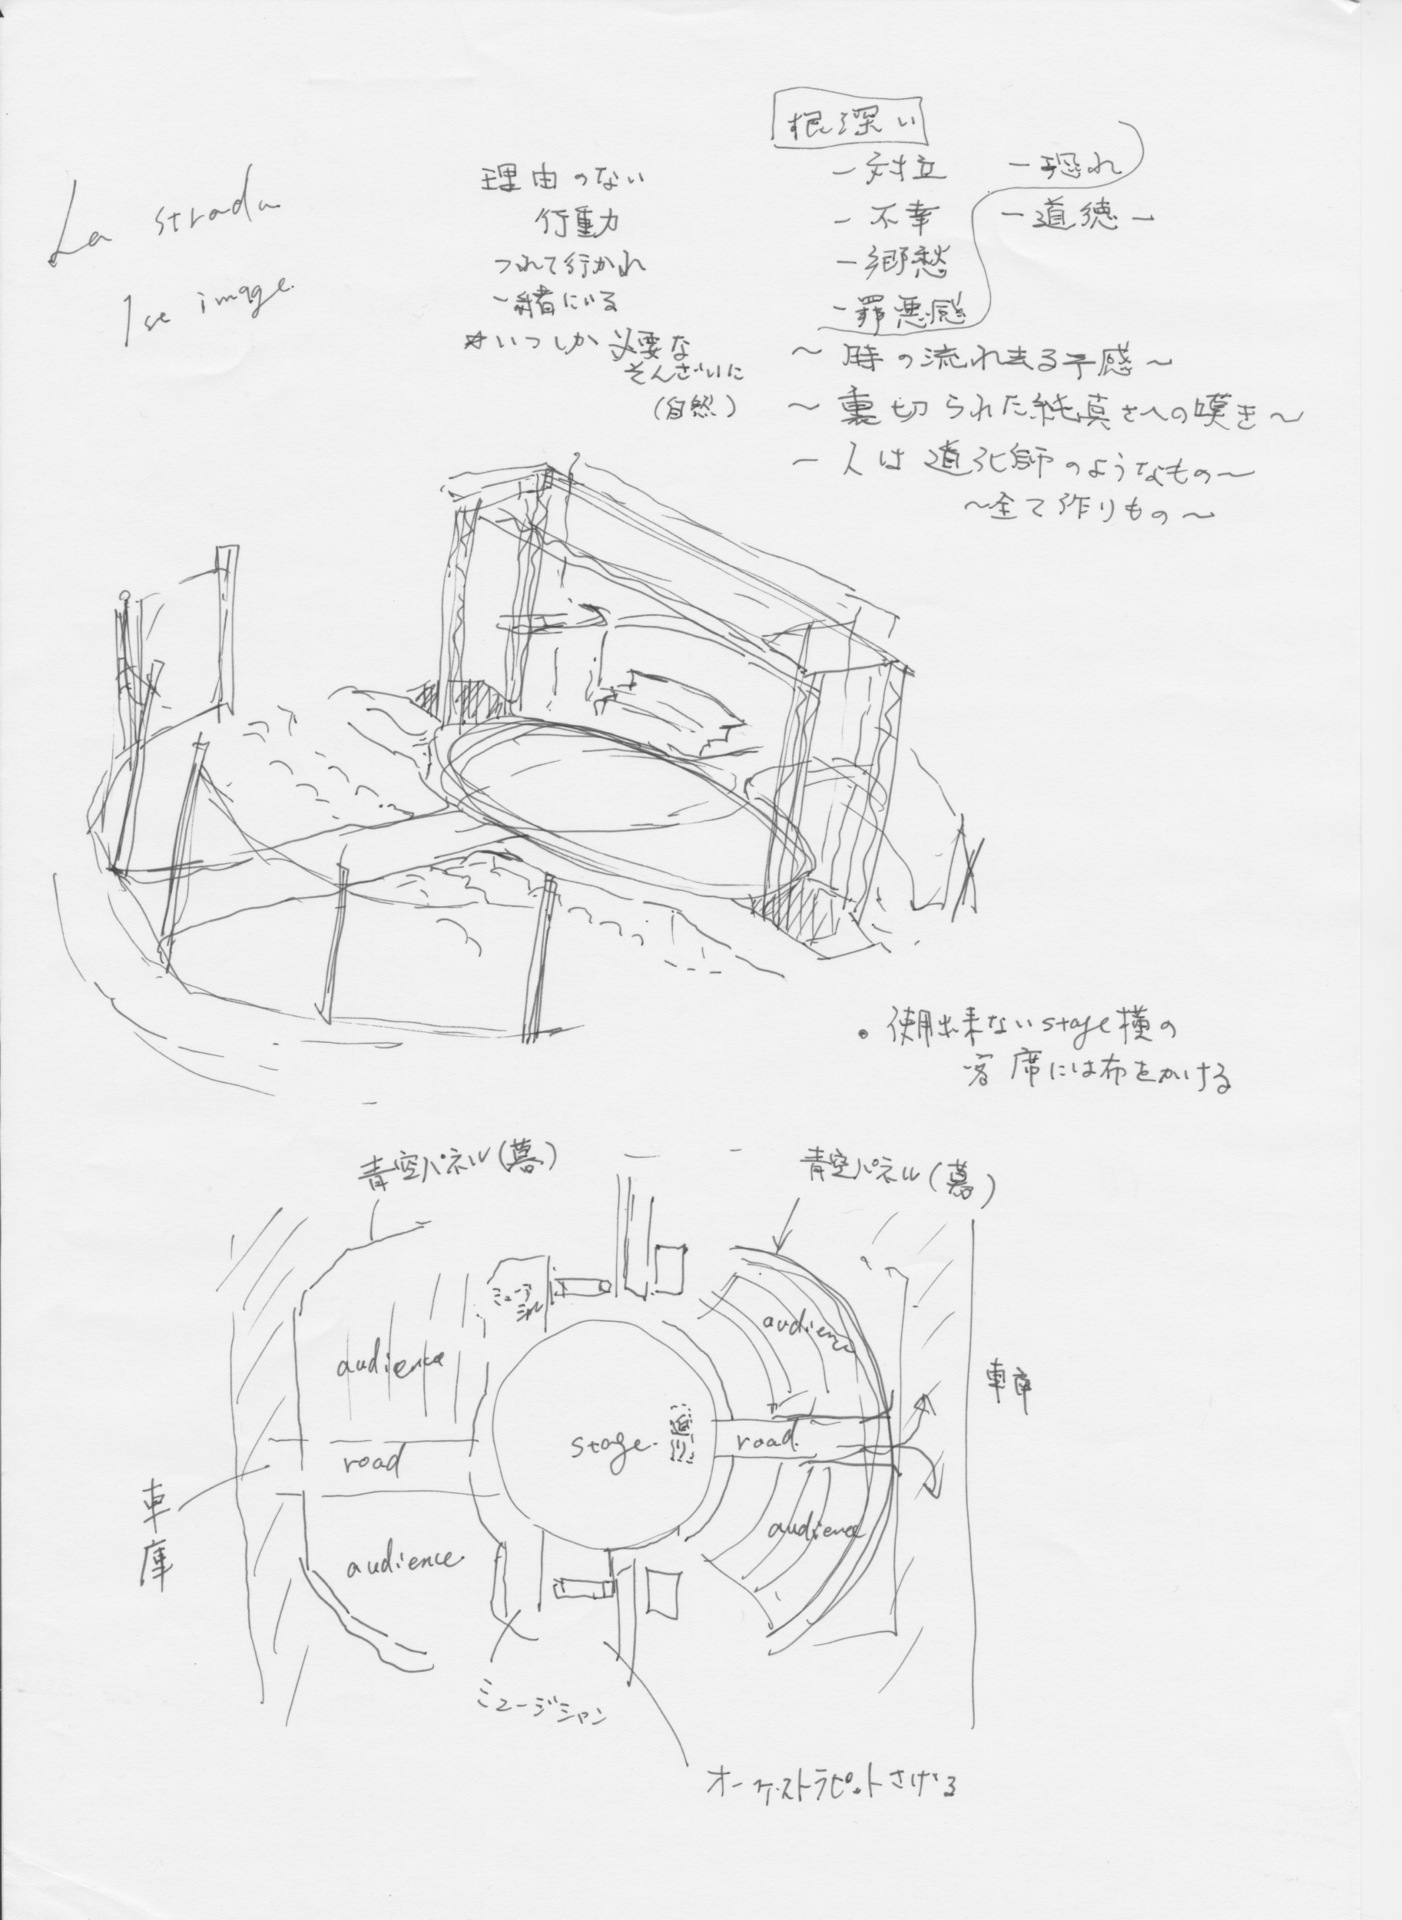 La strada
1st image.
理由のない
行動力
つれて行かれ
一緒にいる
*いつしか必要な
そんざいに
(自然)
根深い
ー対立
ー不幸
ー郷愁
ー罪悪感
ー恐れ
ー道徳ー
〜時の流れ去る予感〜
〜裏切られた純真さへの嘆き〜
ー人は道化師のようなもの〜
〜全て作りもの〜
・使用出来ないstage横の
客席には布をかける
青空パネル(幕)
青空パネル(幕)
ミュージ
シャン
audience
road
audience
stage.
廻り
audience
road.
audience
車庫
車庫
ミュージシャン
オーケストラピットさげる